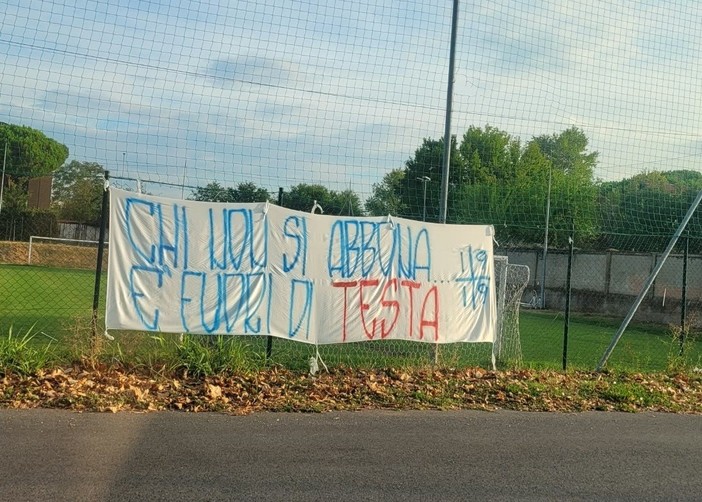 CHI NON SI ABBONA...
E' FUORI DI TESTA